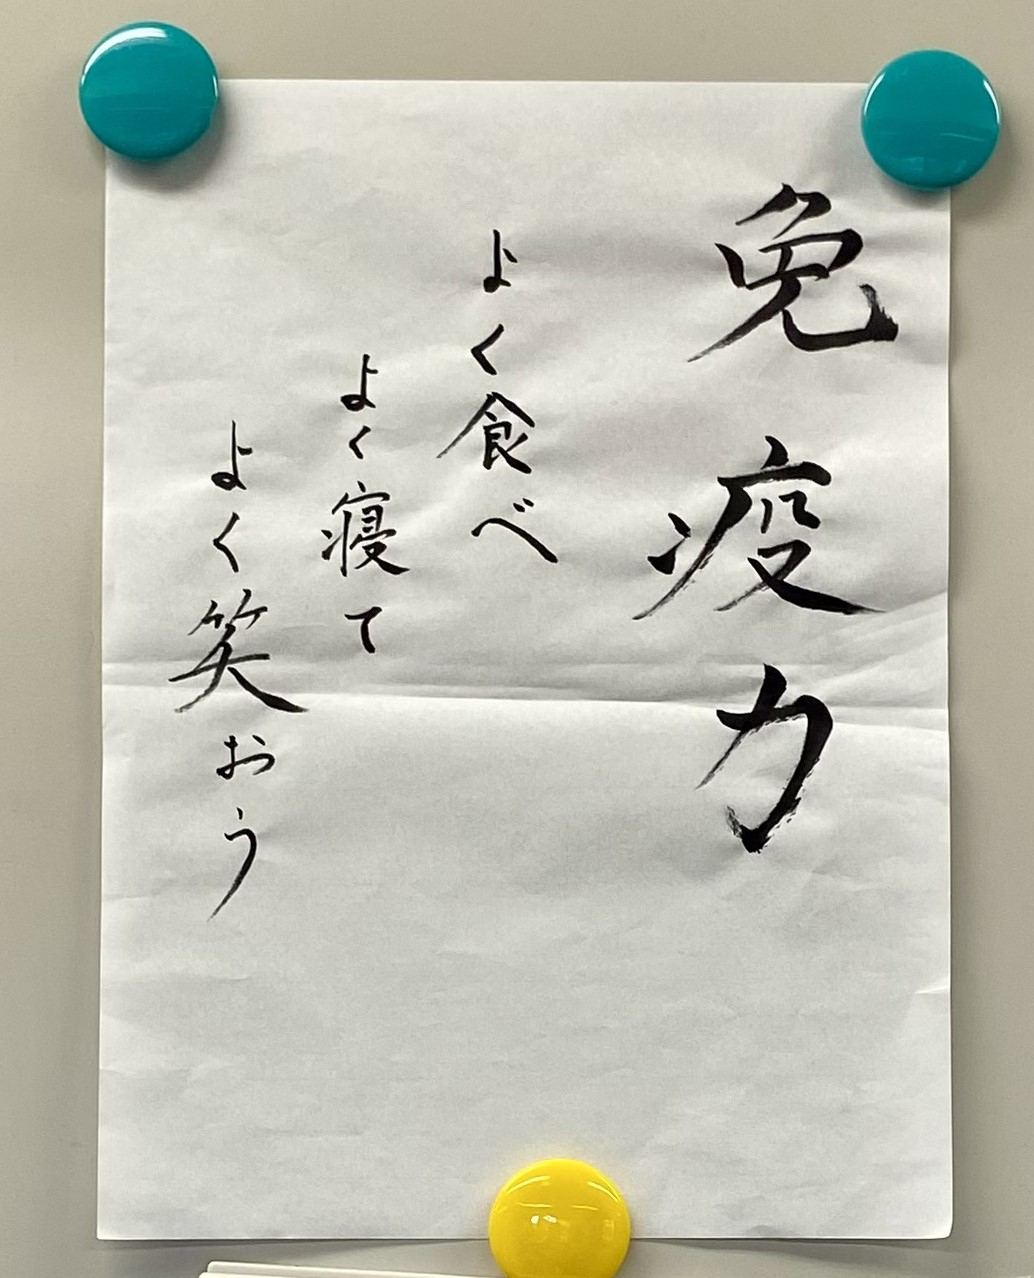 免疫力
よく食べ
よく寝て
よく笑おう